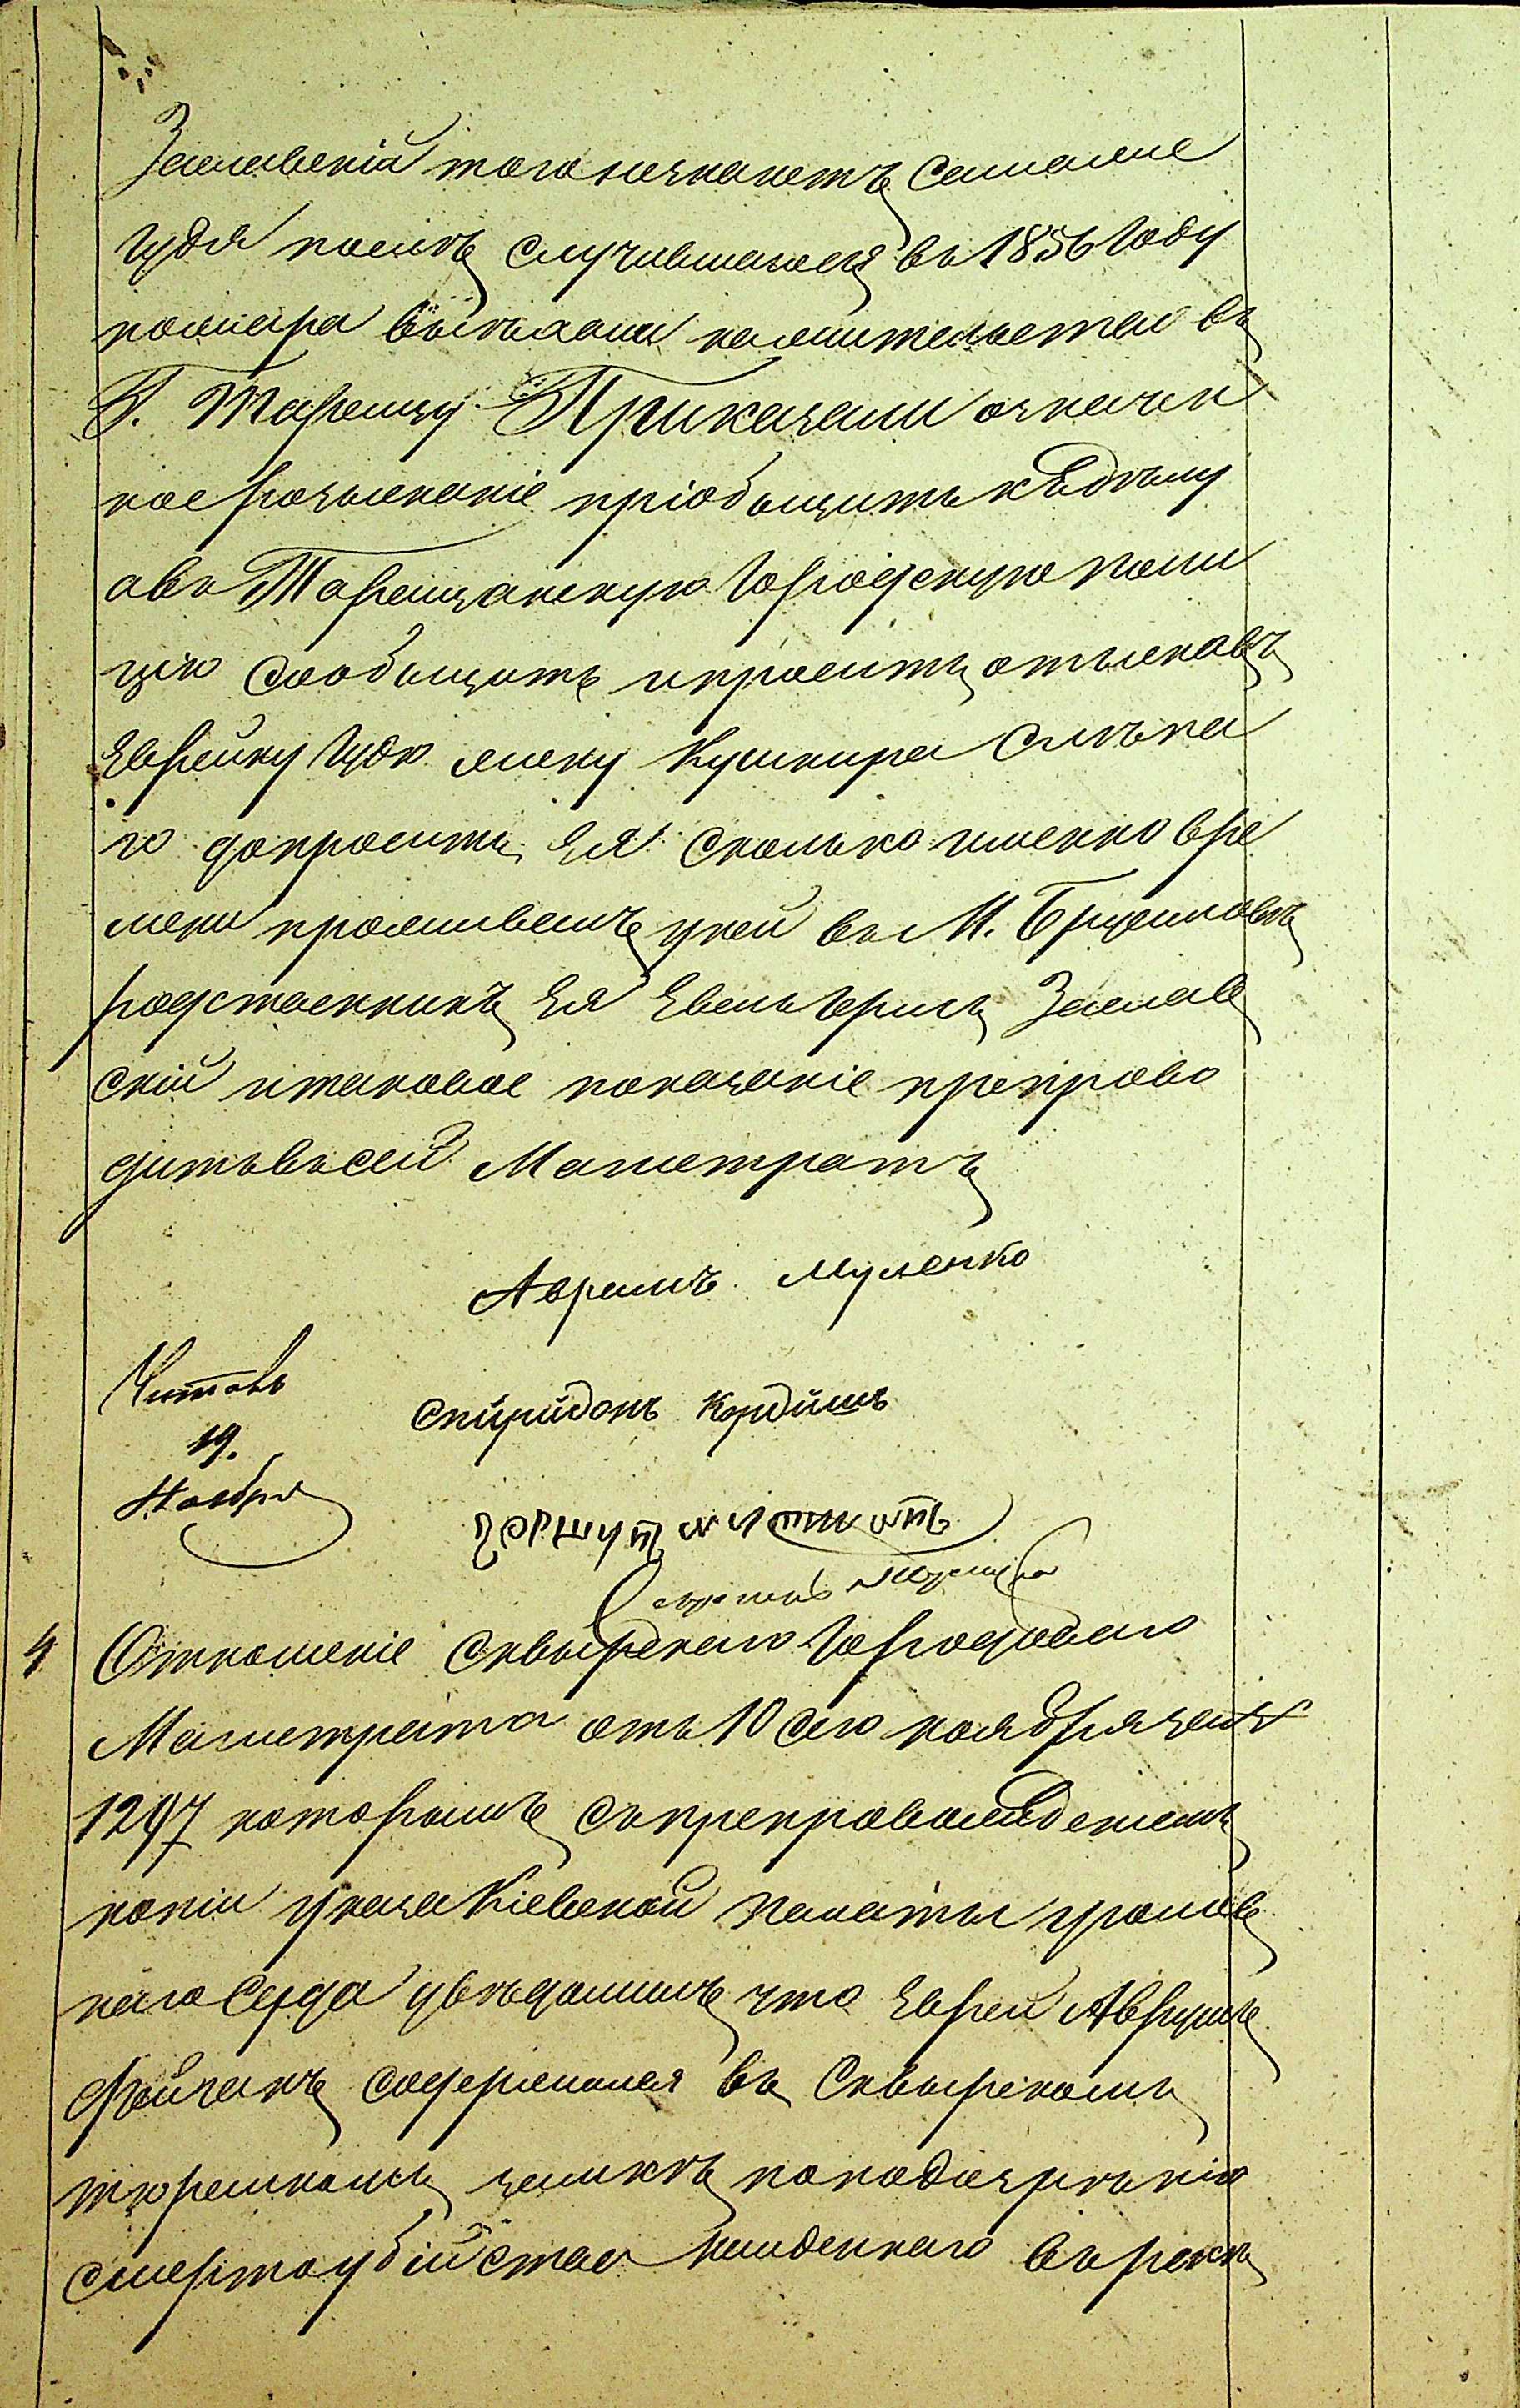 Заславскій того незнаетъ самаже
Гудя послѣ случившагося въ 1856 году
пожара выехала на жительство въ
Г. Таращу. Приказали означен
ное розысканіе пріобыщить къ дѣлу
а въ Таращанскую Городскую поли
цію сообыщить и просить отыскавъ
Еврейку Гудю жену Кушнира Слѣпа
го допросить Ея сколько именно вре
мени проживалъ у ней въ М. Брусиловѣ
родственникъ Ея Евель Герш Заслав
скій и таковое показаніе препрово
дить въ сей Магистратъ
Аврамъ Муленко
Читалъ
19.
Ноября
Спиридонъ Кордишъ
4 Отношеніе Сквырскаго Городоваго
Магистрата отъ 10 сего ноября за №
1297 которымъ съ препровожденіемъ
копіи указа Кіевской палаты уголов
наго Суда увѣдомилъ что Еврей Аврумъ
Файчакъ содержится въ Сквырскомъ
тюремномъ замкѣ по подозрѣнію
смертоубійства найденнаго въ рекѣ